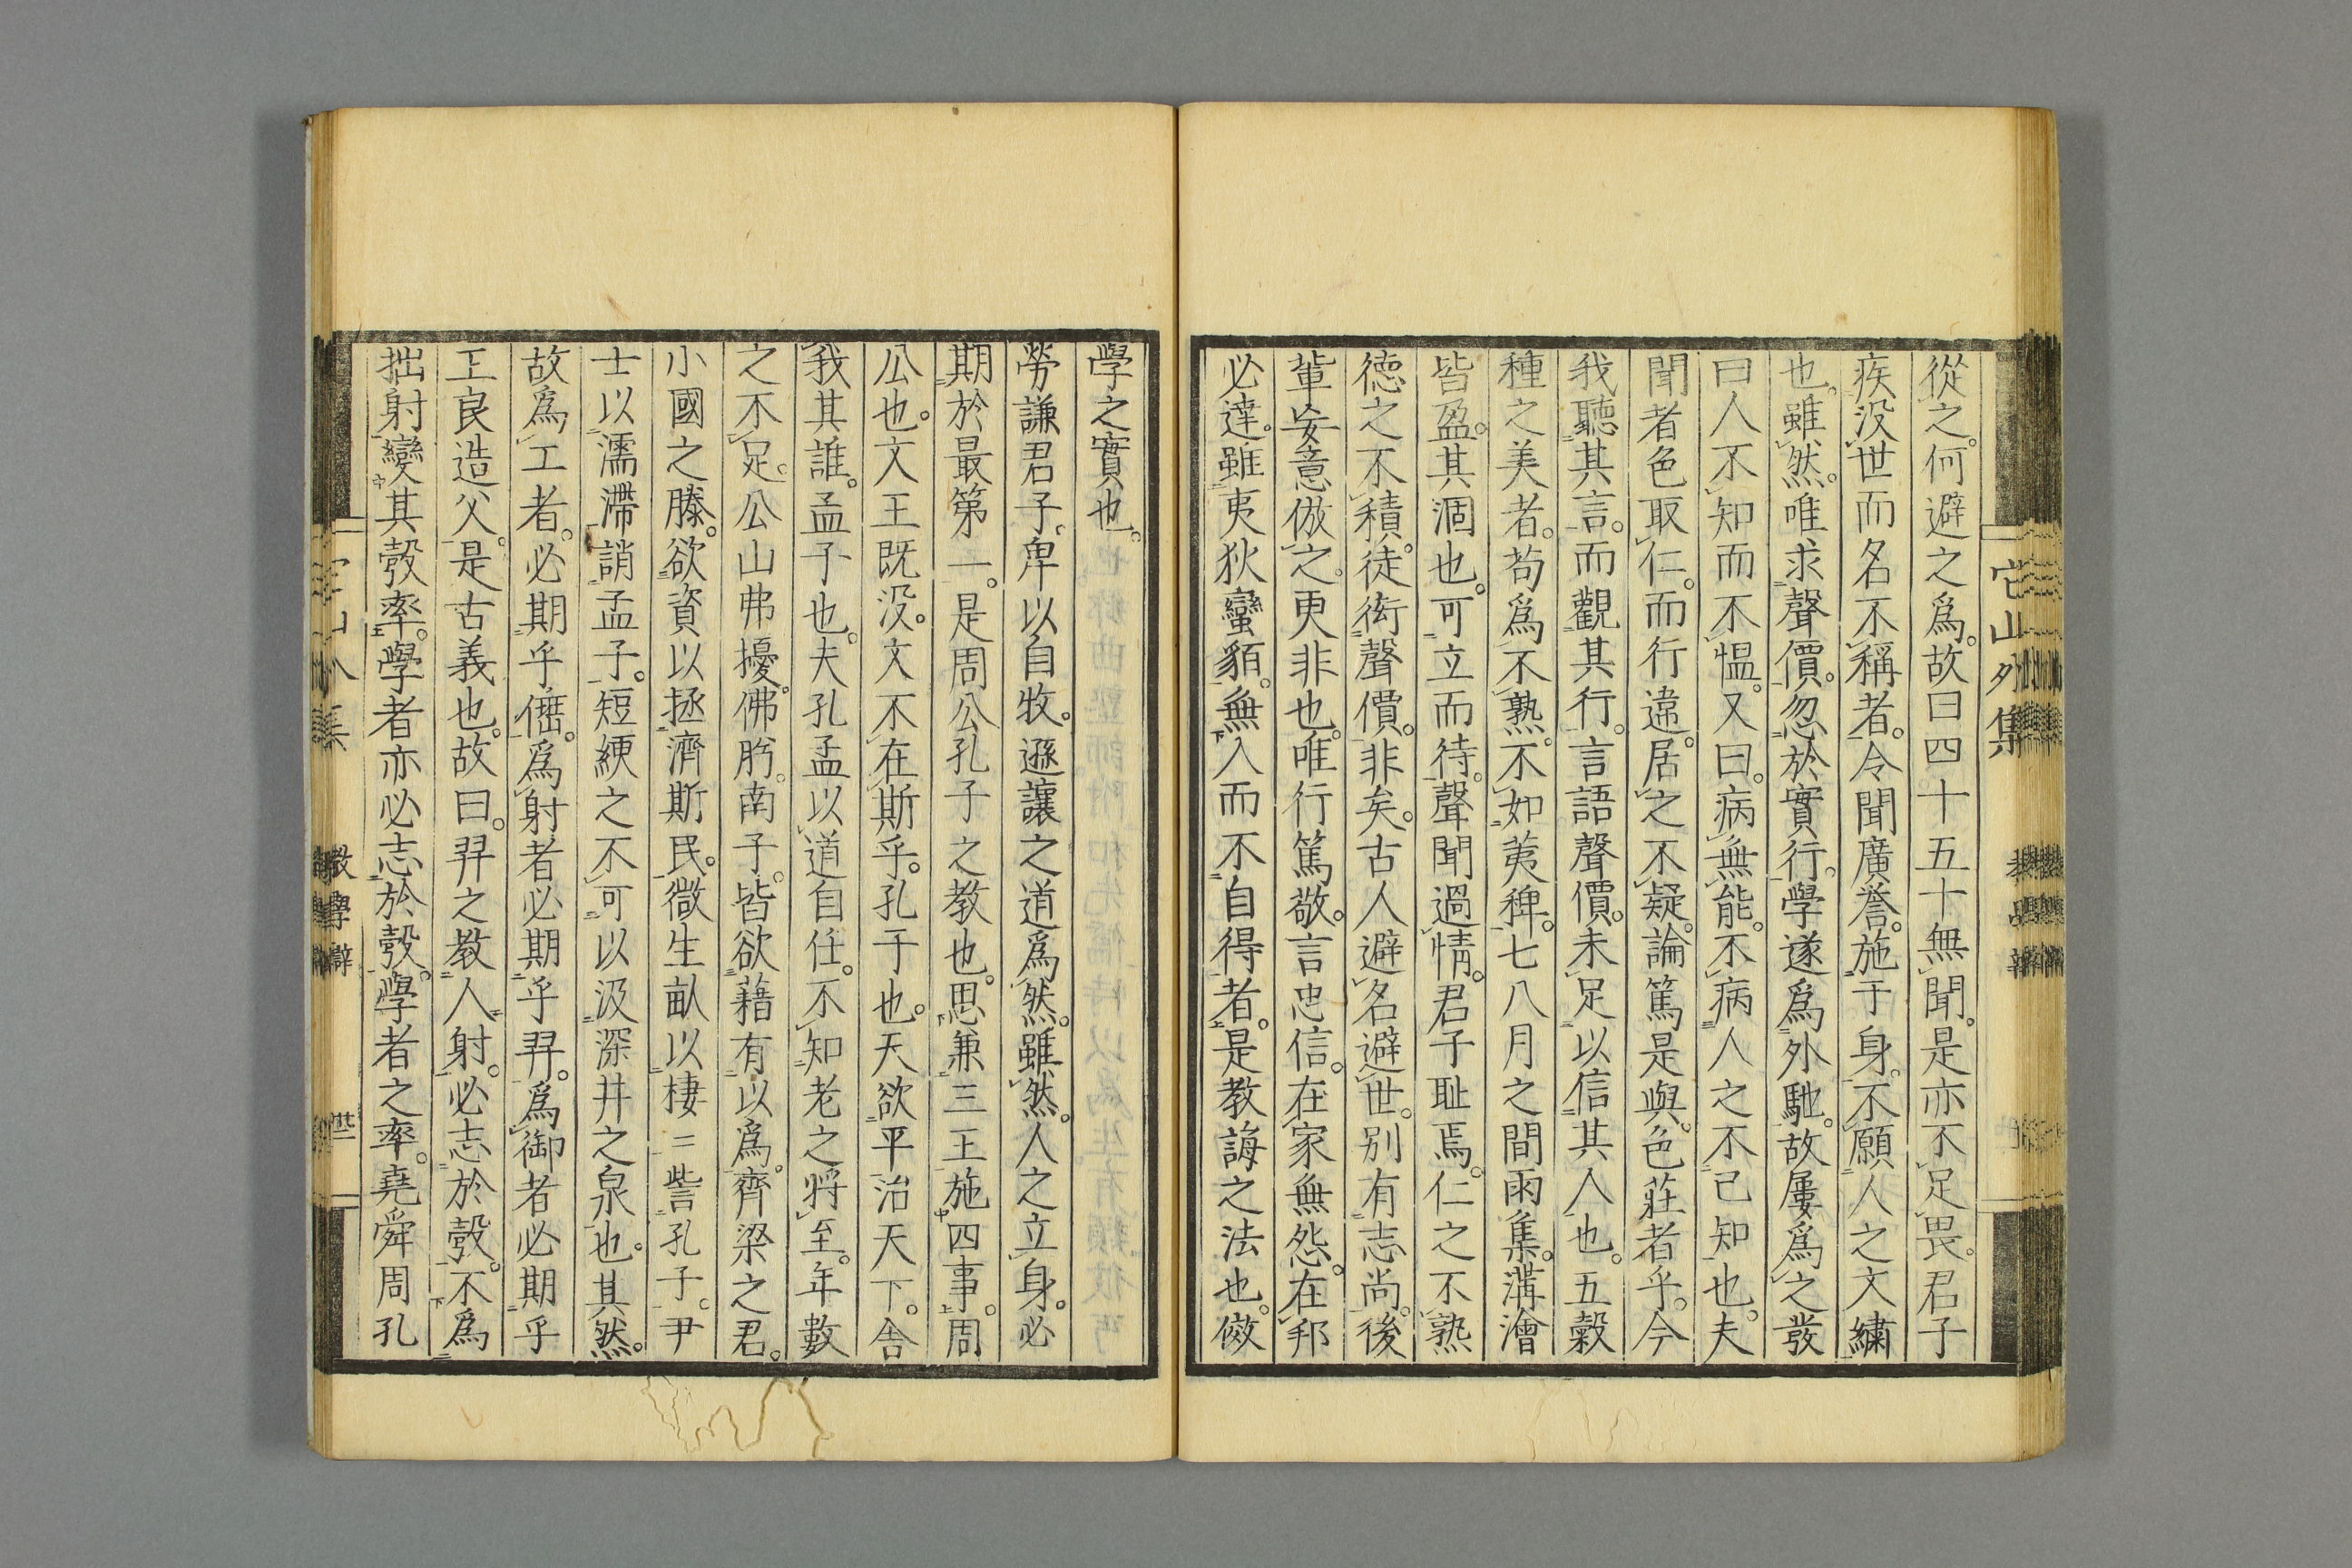 從之。何避之爲。故曰四十五十無聞。是亦不足畏。君子
疾没世而名不稱者。令聞廣誉。施于身。不願人之文繍
也。雖然。唯求聲價。忽於實行。學遂爲外馳。故屢爲之發
曰人不知而不愠。又曰。病無能。不病人之不己知也。夫
聞者色取仁。而行違。居之不疑。論篤是與。色莊者乎。今
我聽其言。而觀其行。言語聲價。未足以信其人也。五穀
種之美者。苟爲不熟。不如荑稗。七八月之間雨集。溝澮
皆盈。其涸也。可立而待。聲聞過情。君子耻焉。仁之不熟
徳之不積。徒衒聲價。非矣。古人避名避世。别有志尚。後
輩妄意倣之。更非也。唯行篤敬。言忠信。在家無怨。在邦
必達。雖夷狄蠻貊。無入而不自得者。是教誨之法也。傚
它山外集
學之實也。
勞謙君子。卑以自牧。遜讓之道爲然。雖然。人之立身。必
期於最第一。是周公孔子之教也。思兼三王施四事。周
公也。文王既没。文不在斯乎。孔子也。天欲平治天下。舎
我其誰。孟子也。夫孔孟以道自任。不知老之将至。年數
之不足。公山弗擾。佛肸。南子。皆欲藉有以爲。齊梁之君。
小國之滕。欲資以拯濟斯民。微生畝以棲〻訾孔子。尹
士以濡滯誚孟子。短綆之不可以汲深井之泉也。其然。
故爲工者。必期乎倕。爲射者必期乎羿。爲御者必期乎
王良造父。是古義也。故曰。羿之教人射。必志於彀。不爲
拙射變其彀率。學者亦必志於彀。學者之率。堯舜周孔
教學辯